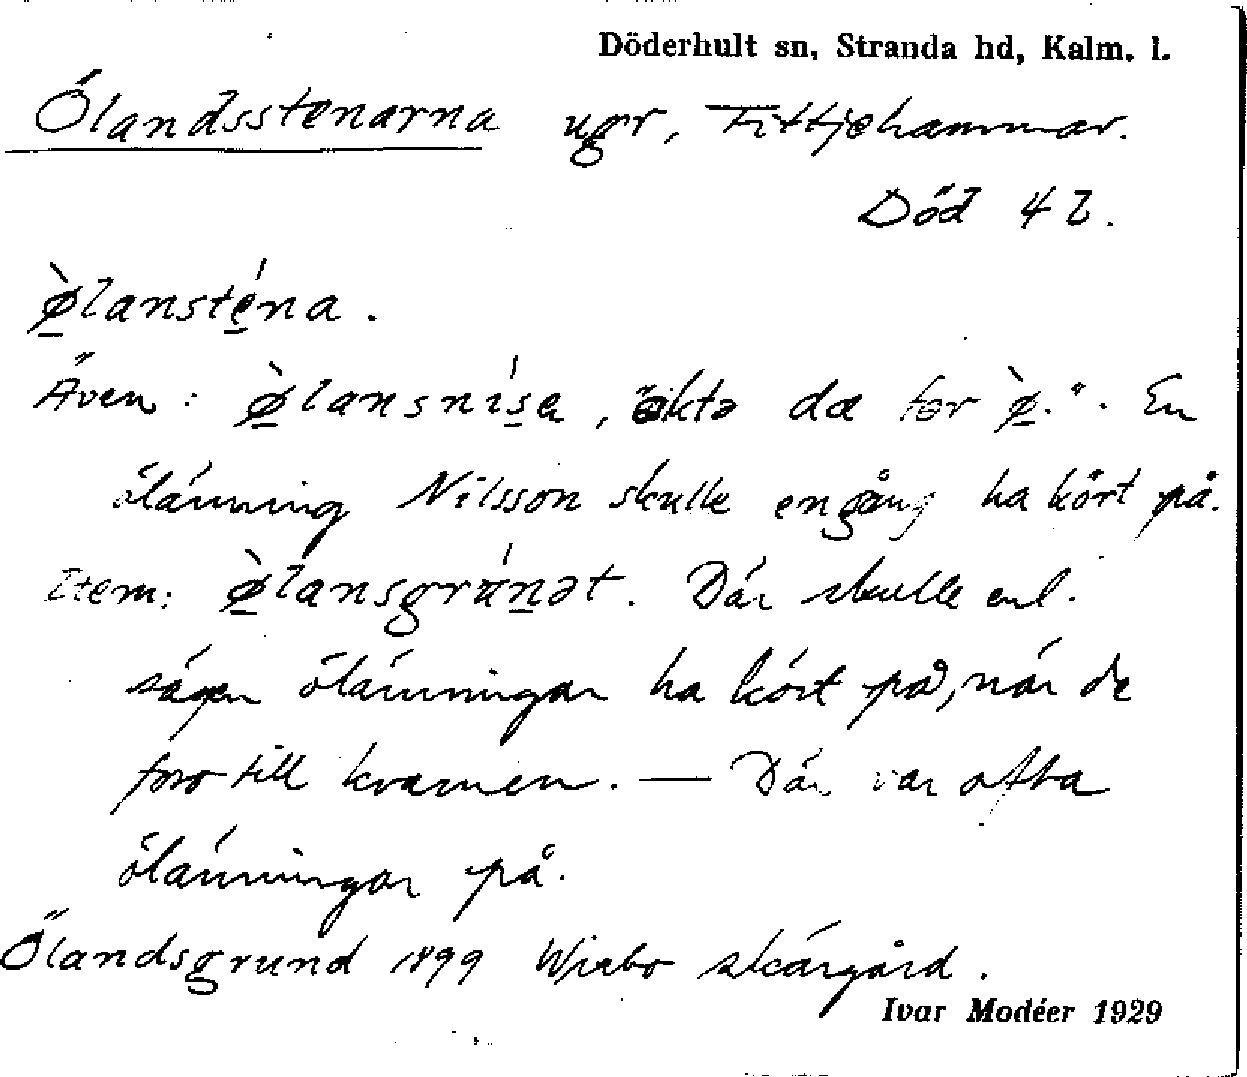 Döderhult sn, Stranda hd, Kalm. l.
Ölandsstenarna ugr, Fittjehammar.
Död 4 l.
ø̀lansténa.
Även: ø̀lansnísa, "äkta dæ for ø̀.". En
ölänning Nilsson skulle engång ha kört på.
Item: ø̀lansgrúnət. Där skulle enl.
sägen ölänningar ha kört på, när de
foro till kvarnen. — Där var ofta
ölänningar på.
Ölandsgrund 1899 Wirbo skärgård.
Ivar Modéer 1929